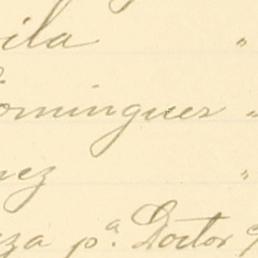 ila "
ominguez "
nez "
za pª. Doctor